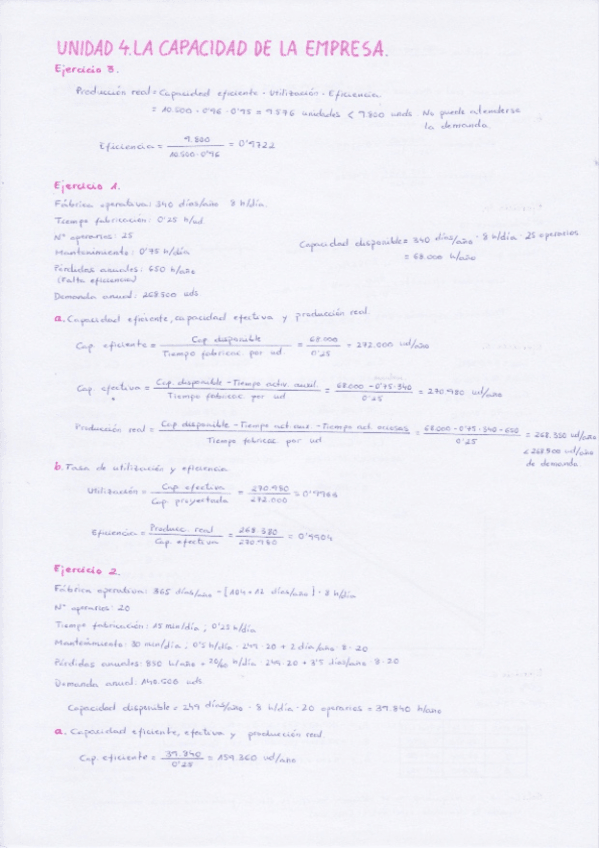 UNIDAD 4. LA CAPACIDAD DE LA EMPRESA.
Ejercicio 3.
Producción real = Capacidad eficiente · Utilización · Eficiencia
= 10.500 · 0'96 · 0'95 = 9.576 unidades < 9.800 uds. No puede atenderse
la demanda.
Eficiencia = 9.800 / 10.500 · 0'96 = 0'9722
Ejercicio 1.
Fábrica operativa: 340 días/año 8 h/día.
Tiempo fabricación: 0'25 h/ud
Nº operarios: 25
Mantenimiento: 0'75 h/día
Capacidad disponible = 340 días/año · 8 h/día · 25 operarios
= 68.000 h/año
Pérdidas anuales: 650 h/año
(Falta eficiencia)
Demanda anual: 268.500 uds.
a. Capacidad eficiente, capacidad efectiva y producción real.
Cap. eficiente = Cap. disponible / Tiempo fabricac. por ud. = 68.000 / 0'25 = 272.000 ud/año
Cap. efectiva = Cap. disponible - Tiempo activ. auxil. / Tiempo fabricac. por ud = 68.000 - 0'75·340 / 0'25 = 270.980 ud/año
Producción real = Cap disponible - Tiempo act. aux. - Tiempo act. ociosas / Tiempo fabricac. por ud = 68.000 - 0'75·340 - 650 / 0'25 = 268.380 ud/año
< 268.500 ud/año
de demanda.
b. Tasa de utilización y eficiencia
Utilización = Cap. efectiva / Cap. proyectada = 270.980 / 272.000 =
Eficiencia = Producc. real / Cap. efectiva = 268.380 / 270.980 = 0'9904
Ejercicio 2.
Fábrica operativa: 365 días/año - [104 + 12 días/año] · 8 h/día
Nº operarios: 20
Tiempo fabricación: 15 min/día ; 0'25 h/día
Mantenimiento: 30 min/día ; 0'5 h/día · 249 · 20 + 2 días/año · 8 · 20
Pérdidas anuales: 850 h/año + 20/60 h/día · 249 · 20 + 3'5 días/año · 8 · 20
Demanda anual: 140.500 uds.
Capacidad disponible = 249 días/año · 8 h/día · 20 operarios = 39.840 h/año
a. Capacidad eficiente, efectiva y producción real.
Cap. eficiente = 39.840 / 0'25 = 159.360 ud/año